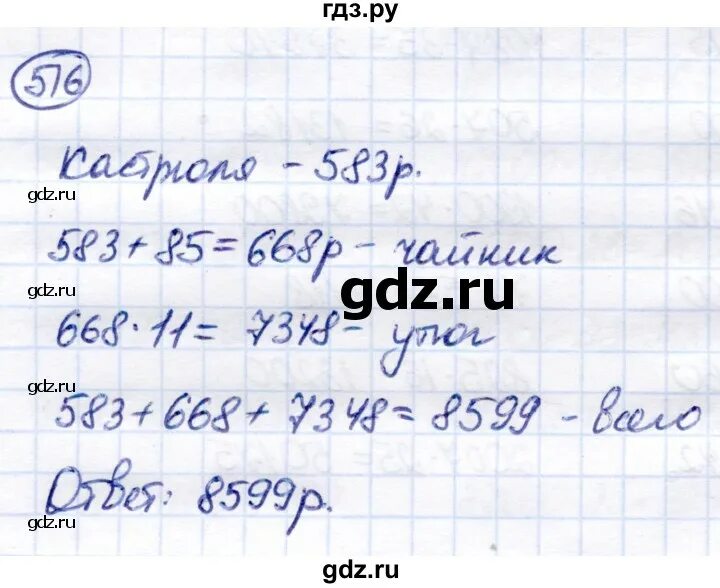 гдз.ру
576
Кастрюля - 583р.
gdz.ru
583 + 85 = 668р - чайник
gdz.ru
gdz.ru
668 · 11 = 7348 - утюг
gdz.ru
583 + 668 + 7348 = 8599 - всего
Ответ: 8599р.
gdz.ru
gdz.ru